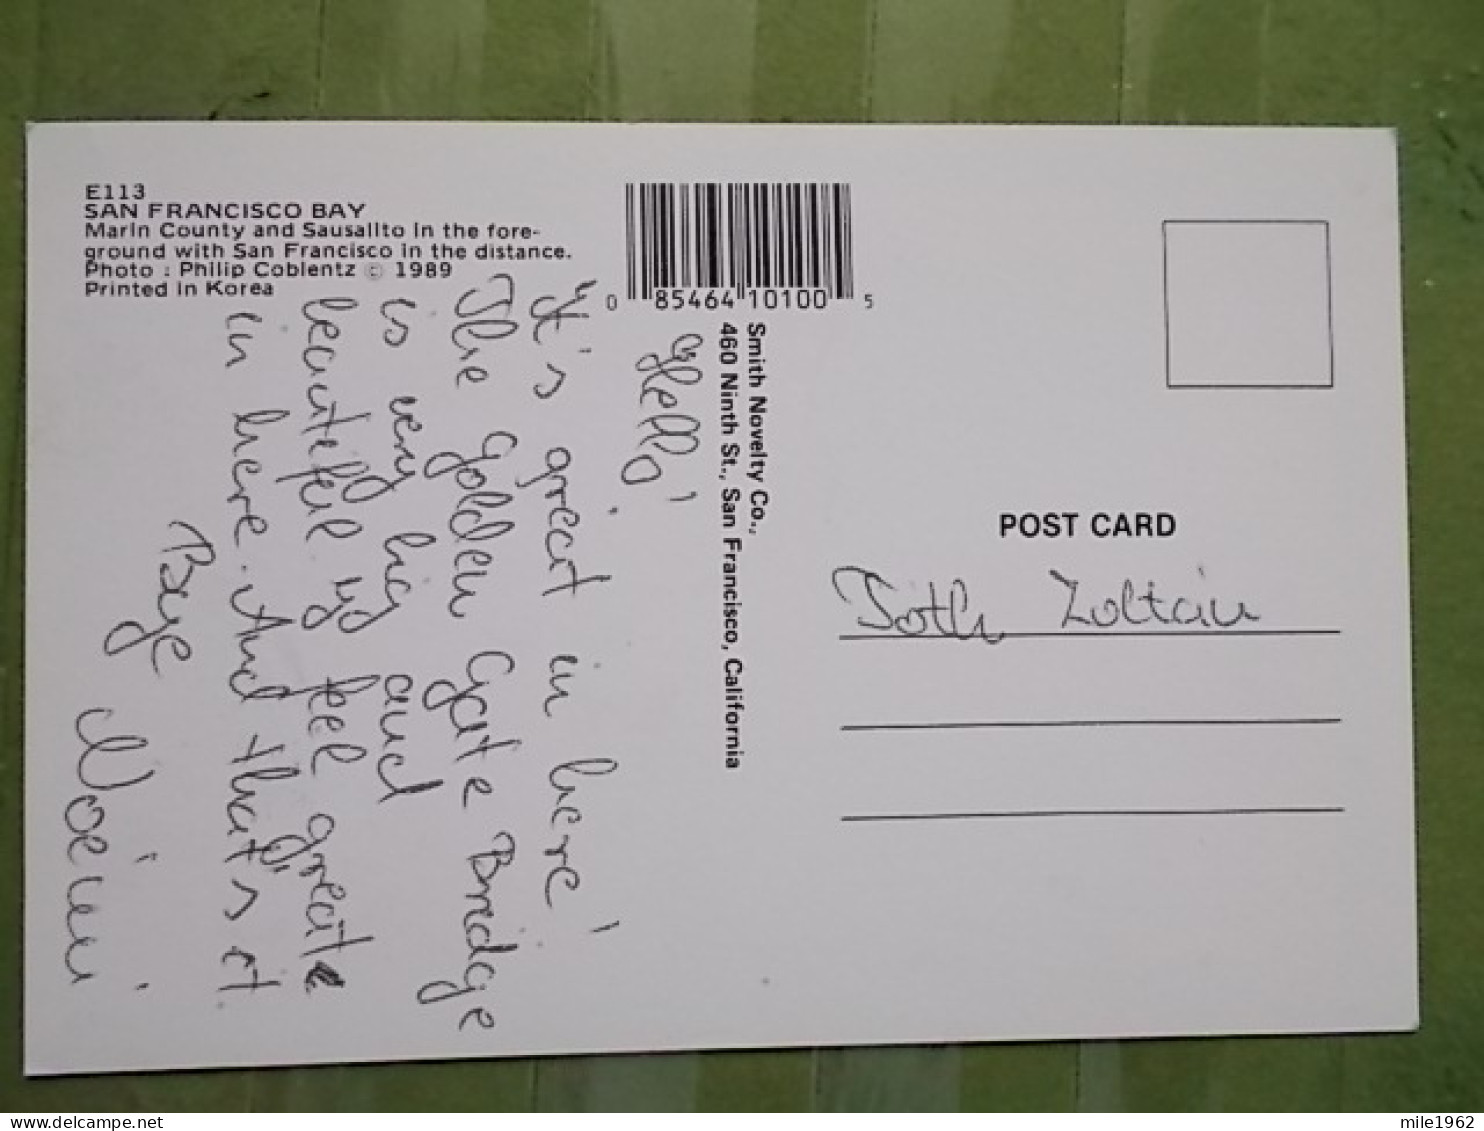 E113
SAN FRANCISCO BAY
Marin County and Sausalito in the fore-
ground with San Francisco in the distance.
Photo : Philip Coblentz © 1989
Printed in Korea
0 85464 10100 5
Smith Novelty Co.,
460 Ninth St., San Francisco, California
POST CARD
Tóth Zoltán
Hello!
It's great in here!
The Golden Gate Bridge
is very big and
beautiful yo feel great
in here. And that's it.
Bye
Noémi
delcampe.net
mile1962